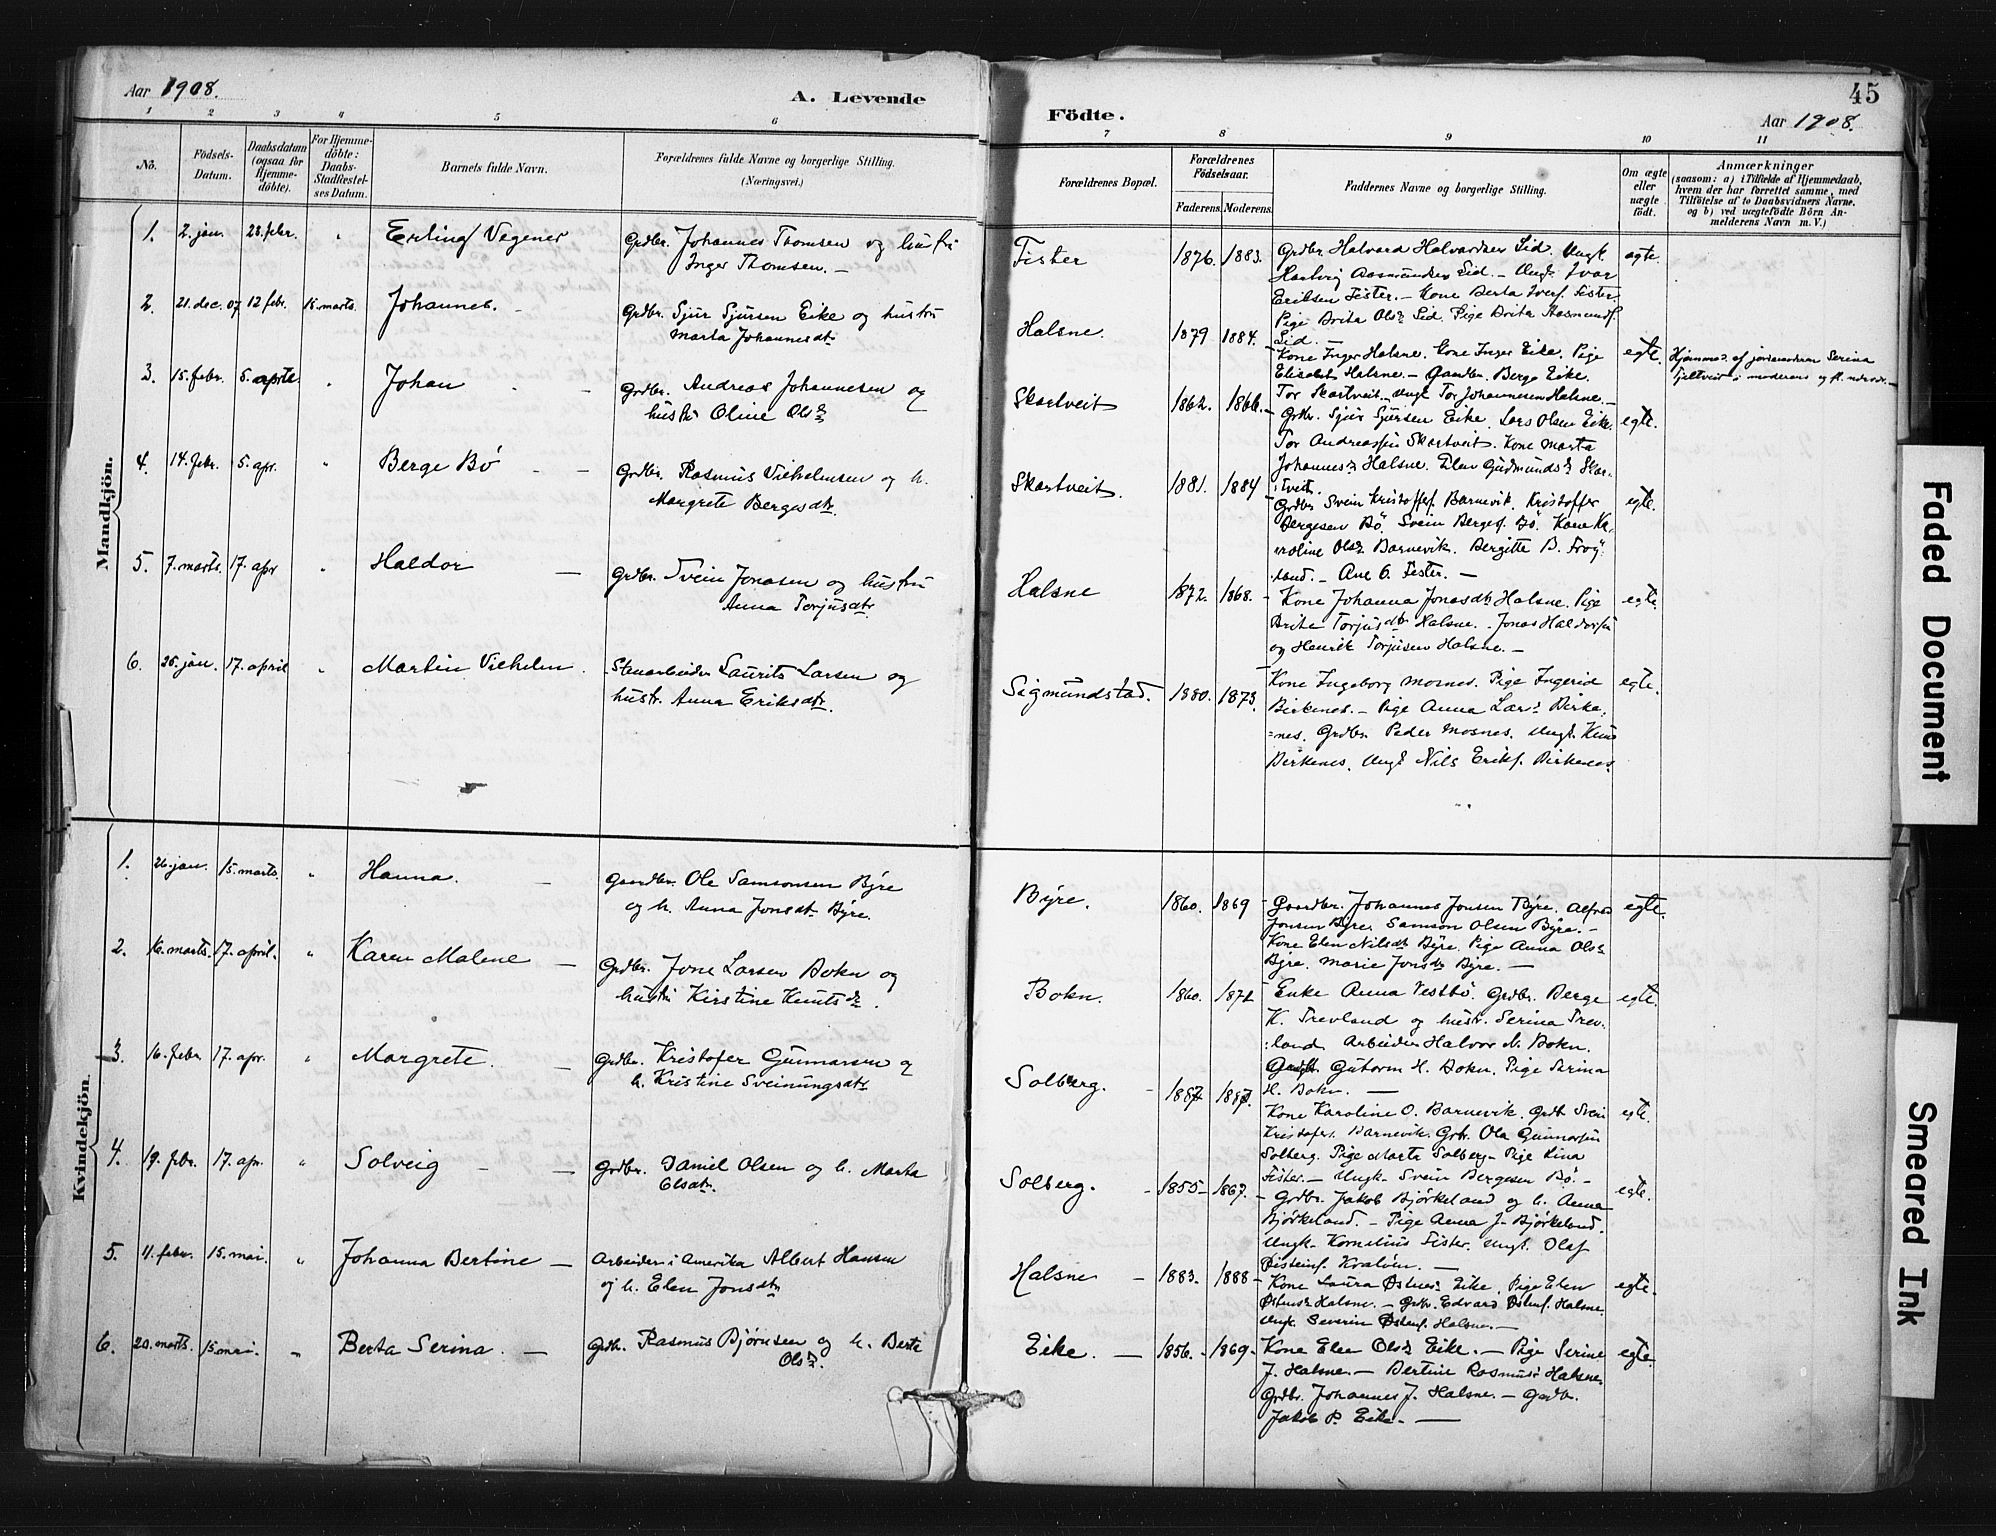 Aar 1908.
A. Levende
Födte.
Aar 1908.
45
1 2 3 4 5 6 7 8 9 10 11
No.
Födsels-
Datum.
Daabsdatum
(ogsaa for
Hjemme-
döbte).
For Hjemme-
döbte:
Daabs-
Stadfæstel-
ses Datum.
Barnets fulde Navn.
Forældrenes fulde Navne og borgerlige Stilling.
(Næringsvei.)
Forældrenes Bopæl.
Forældrenes
Födselsaar.
Faderens. Moderens.
Faddernes Navne og borgerlige Stilling.
Om ægte
eller
uægte
födt.
Anmærkninger
(saasom: a) i Tilfælde af Hjemmedaab,
hvem der har forrettet samme, med
Tilföielse af to Daabsvidners Navne.
og b) ved uægtefödte Börn An-
melderens Navn m. V.)
Mandkjön.
1. 2. jan. 23. febr. " Erling Vegener Grdbr. Johannes Thomsen og hustru
Inger Thomsen. —
Fister 1876. 1883. Grdbr. Halvard Halvardsen Lid. Ungk.
Hartvig Aasmundsen Lid. — Ungk. Ivar
Eriksen Fister. — Kone Berta Iverf. Fister.
Pige Brita Olsd. Lid. Pige Brita Aasmundf.
Lid. —
ægte.
2. 21. dec. 07 12 febr. 15. marts. Johannes. Grdbr. Sjur Sjursen Eike og hustru
Marta Johannesdtr.
Halsne. 1879 1884. Kone Inger Halsne. Kone Inger Eike. Pige
Elisabet Halsne. — Gaardbr. Berge Eike.
Tor Skartveit. Ungk. Tor Johannesen Halsne. —
egte.
Hjemmed. af jordmoderen Serina
Tjeltveit i moderens og fl. nærvær. —
3. 15. febr. 5. april. " Johan Grdbr. Andreas Johannesen og
hustru Oline Olsd.
Skartveit 1862. 1866. Grdbr. Sjur Sjursen Eike. Lars Olsen Eike.
Tor Andreassen Skartveit. Kone Marta
Johannesd. Halsne. Elen Gudmundsd. Skar-
tveit.
egte.
4. 14. febr. 5. apr. " Berge Bö Grdbr. Rasmus Vilhelmsen og h.
Margrete Bergesdtr.
Skartveit. 1881. 1884 Grdbr. Svein Kristoffef. Barnevik. Kristoffer
Bergesen Bö. Svein Bergesf. Bö. Kone Ka-
roline Olsd. Barnevik. Bergitte B. Fröy-
land. — Ane G. Fister. —
egte.
5. 7. marts. 17. apr " Haldor Grdbr. Svein Jonasen og hustru
Anna Torjusdtr.
Halsne 1872. 1868. Kone Johanna Jonasdtr Halsne. Pige
Brita Torjusdtr Halsne. Jonas Haldorsen
og Henrik Torjusen Halsne. —
egte.
6. 25. jan. 17. april " Martin Vilhelm. Stenarbeider Laurits Larsen og
hustr. Anna Eriksdtr.
Sigmundstad. 1880. 1873. Kone Ingeborg Mosnes. Pige Ingerid
Birkenes. — Pige Anna Larsd. Birke-
nes. Grdbr. Peder Mosnes. Ungk. Knut
Birkenes. Ungk. Nils Eriksf. Birkenes.
egte.
Kvindekjön.
1. 26. jan. 15. marts. " Hanna. Gaardbr. Ole Samsonsen Byre
og h. Anna Jonsdtr Byre.
Byre. 1860. 1869 Gaardbr. Johannes Jonsen Byre. Alfred
Jonsen Byre. Samson Olsen Byre. —
Kone Elen Nilsdtr Byre. Pige Anna Olsd.
Byre. Marie Jonsdtr Byre. —
egte.
2. 16. marts. 17. april. " Karen Malene Grdbr. Jone Larsen Bokn og
hustru Kirstine Knutsd.
Bokn. 1860. 1872 Enke Anna Vestbö. Grdbr. Berge
K. Trevland og hustr. Serina Trev-
land. Arbeider Halvor N. Bokn.
Ungk. Gutorm H. Bokn. Pige Serina
H. Bokn. —
egte.
3. 16. febr. 17. apr. " Margrete. Grdbr. Kristofer Gunnarsen og
h. Kristine Sveinungsdtr
Solberg. Kone Karoline O. Barnevik. Grdb. Svein
Kristofers. Barnevik. Grbr. Ola Gunnarsen
Solberg. Pige Marta Solberg. Pige Lina
Fister. — Ungk. Svein Bergesen Bö. —
egte.
4. 19. febr. 17. apr. " Solveig Grdbr. Daniel Olsen og h. Marta
Olsdtr.
Solberg. 1855 1867. Grdbr. Jakob Björkeland og h. Anna
Björkeland. — Pige Anna J. Björkeland.
Ungk. Kornelius Fister. Ungk. Olaf
Östeinf. Kvalöen. —
egte.
5. 11. febr. 15. mai. " Johanna Bertine — Arbeider i Amerika Albert Hansen
og h. Elen Jonsdtr
Halsne 1883. 1888 Kone Laura Østensd. Eike. Pige Elen
Østensd. Halsne. — Grdbr. Edvard Østenf. Halsne.
Ungk. Severin Østenf. Halsne. —
egte.
6. 20. marts. 15. mai. " Berta Serina. — Grdbr. Rasmus Bjørnsen og h. Berte
Olsd.
Eike. — 1856. 1869 Kone Elen Olsd. Eike. — Pige Serine
J. Halsne. — Bertine Rasmusd. Halsne.
Grdbr. Johannes J. Halsne. — Grdb.
Jakob P. Eike. —
egte.
Faded Document
Smeared Ink